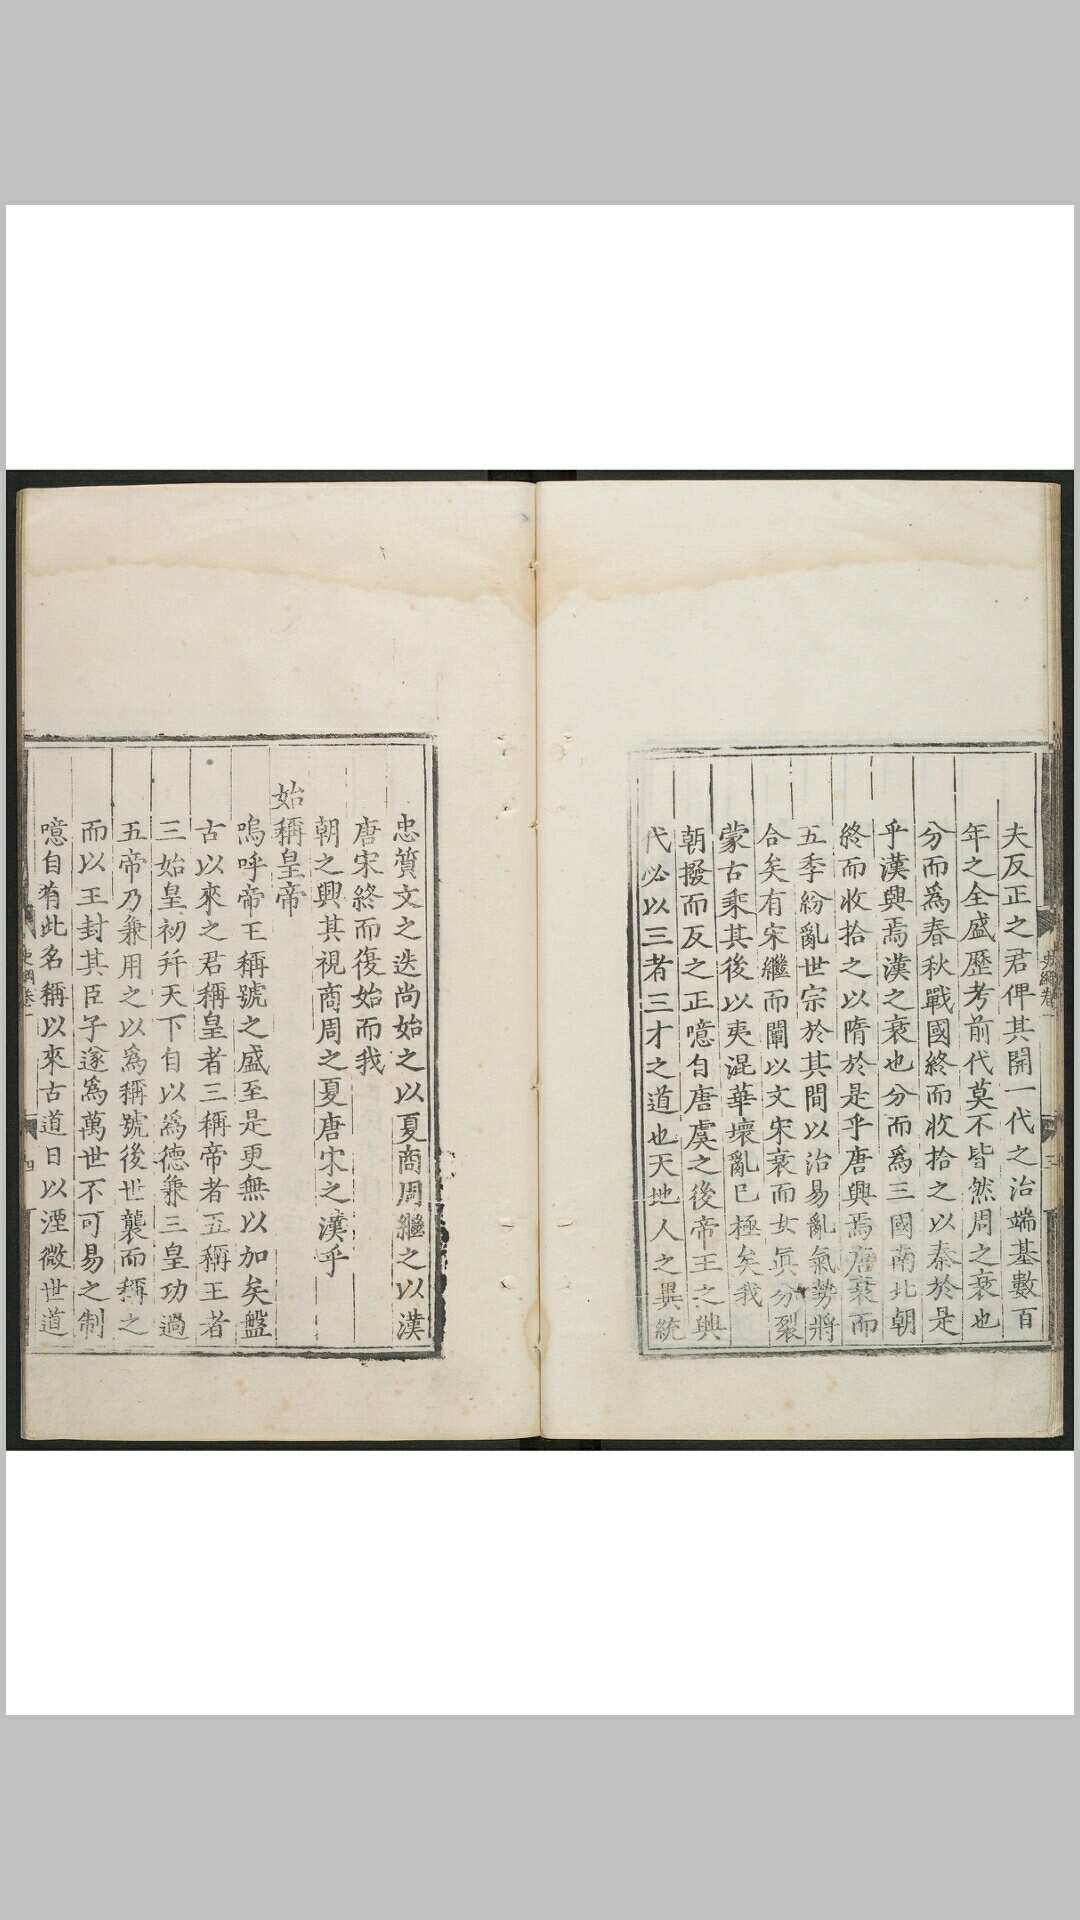 夫反正之君俾其開一代之治端基數百
年之全盛歷考前代莫不皆然周之衰也
分而爲春秋戰國終而收拾之以秦於是
乎漢興焉漢之衰也分而爲三國南北朝
終而收拾之以隋於是乎唐興焉唐衰而
五季紛亂世宗於其間以治易亂氣勢將
合矣有宋繼而闡以文宋衰而女眞分裂
蒙古乘其後以夷混華壞亂已極矣我
朝撥而反之正噫自唐虞之後帝王之興
代必以三者三才之道也天地人之異統
忠質文之迭尚始之以夏商周繼之以漢
唐宋終而復始而我
朝之興其視商周之夏唐宋之漢乎
始稱皇帝
嗚呼帝王稱號之盛至是更無以加矣盤
古以來之君稱皇者三稱帝者五稱王者
三始皇初并天下自以爲德兼三皇功過
五帝乃兼用之以爲稱號後世襲而稱之
而以王封其臣子遂爲萬世不可易之制
噫自有此名稱以來古道日以湮微世道